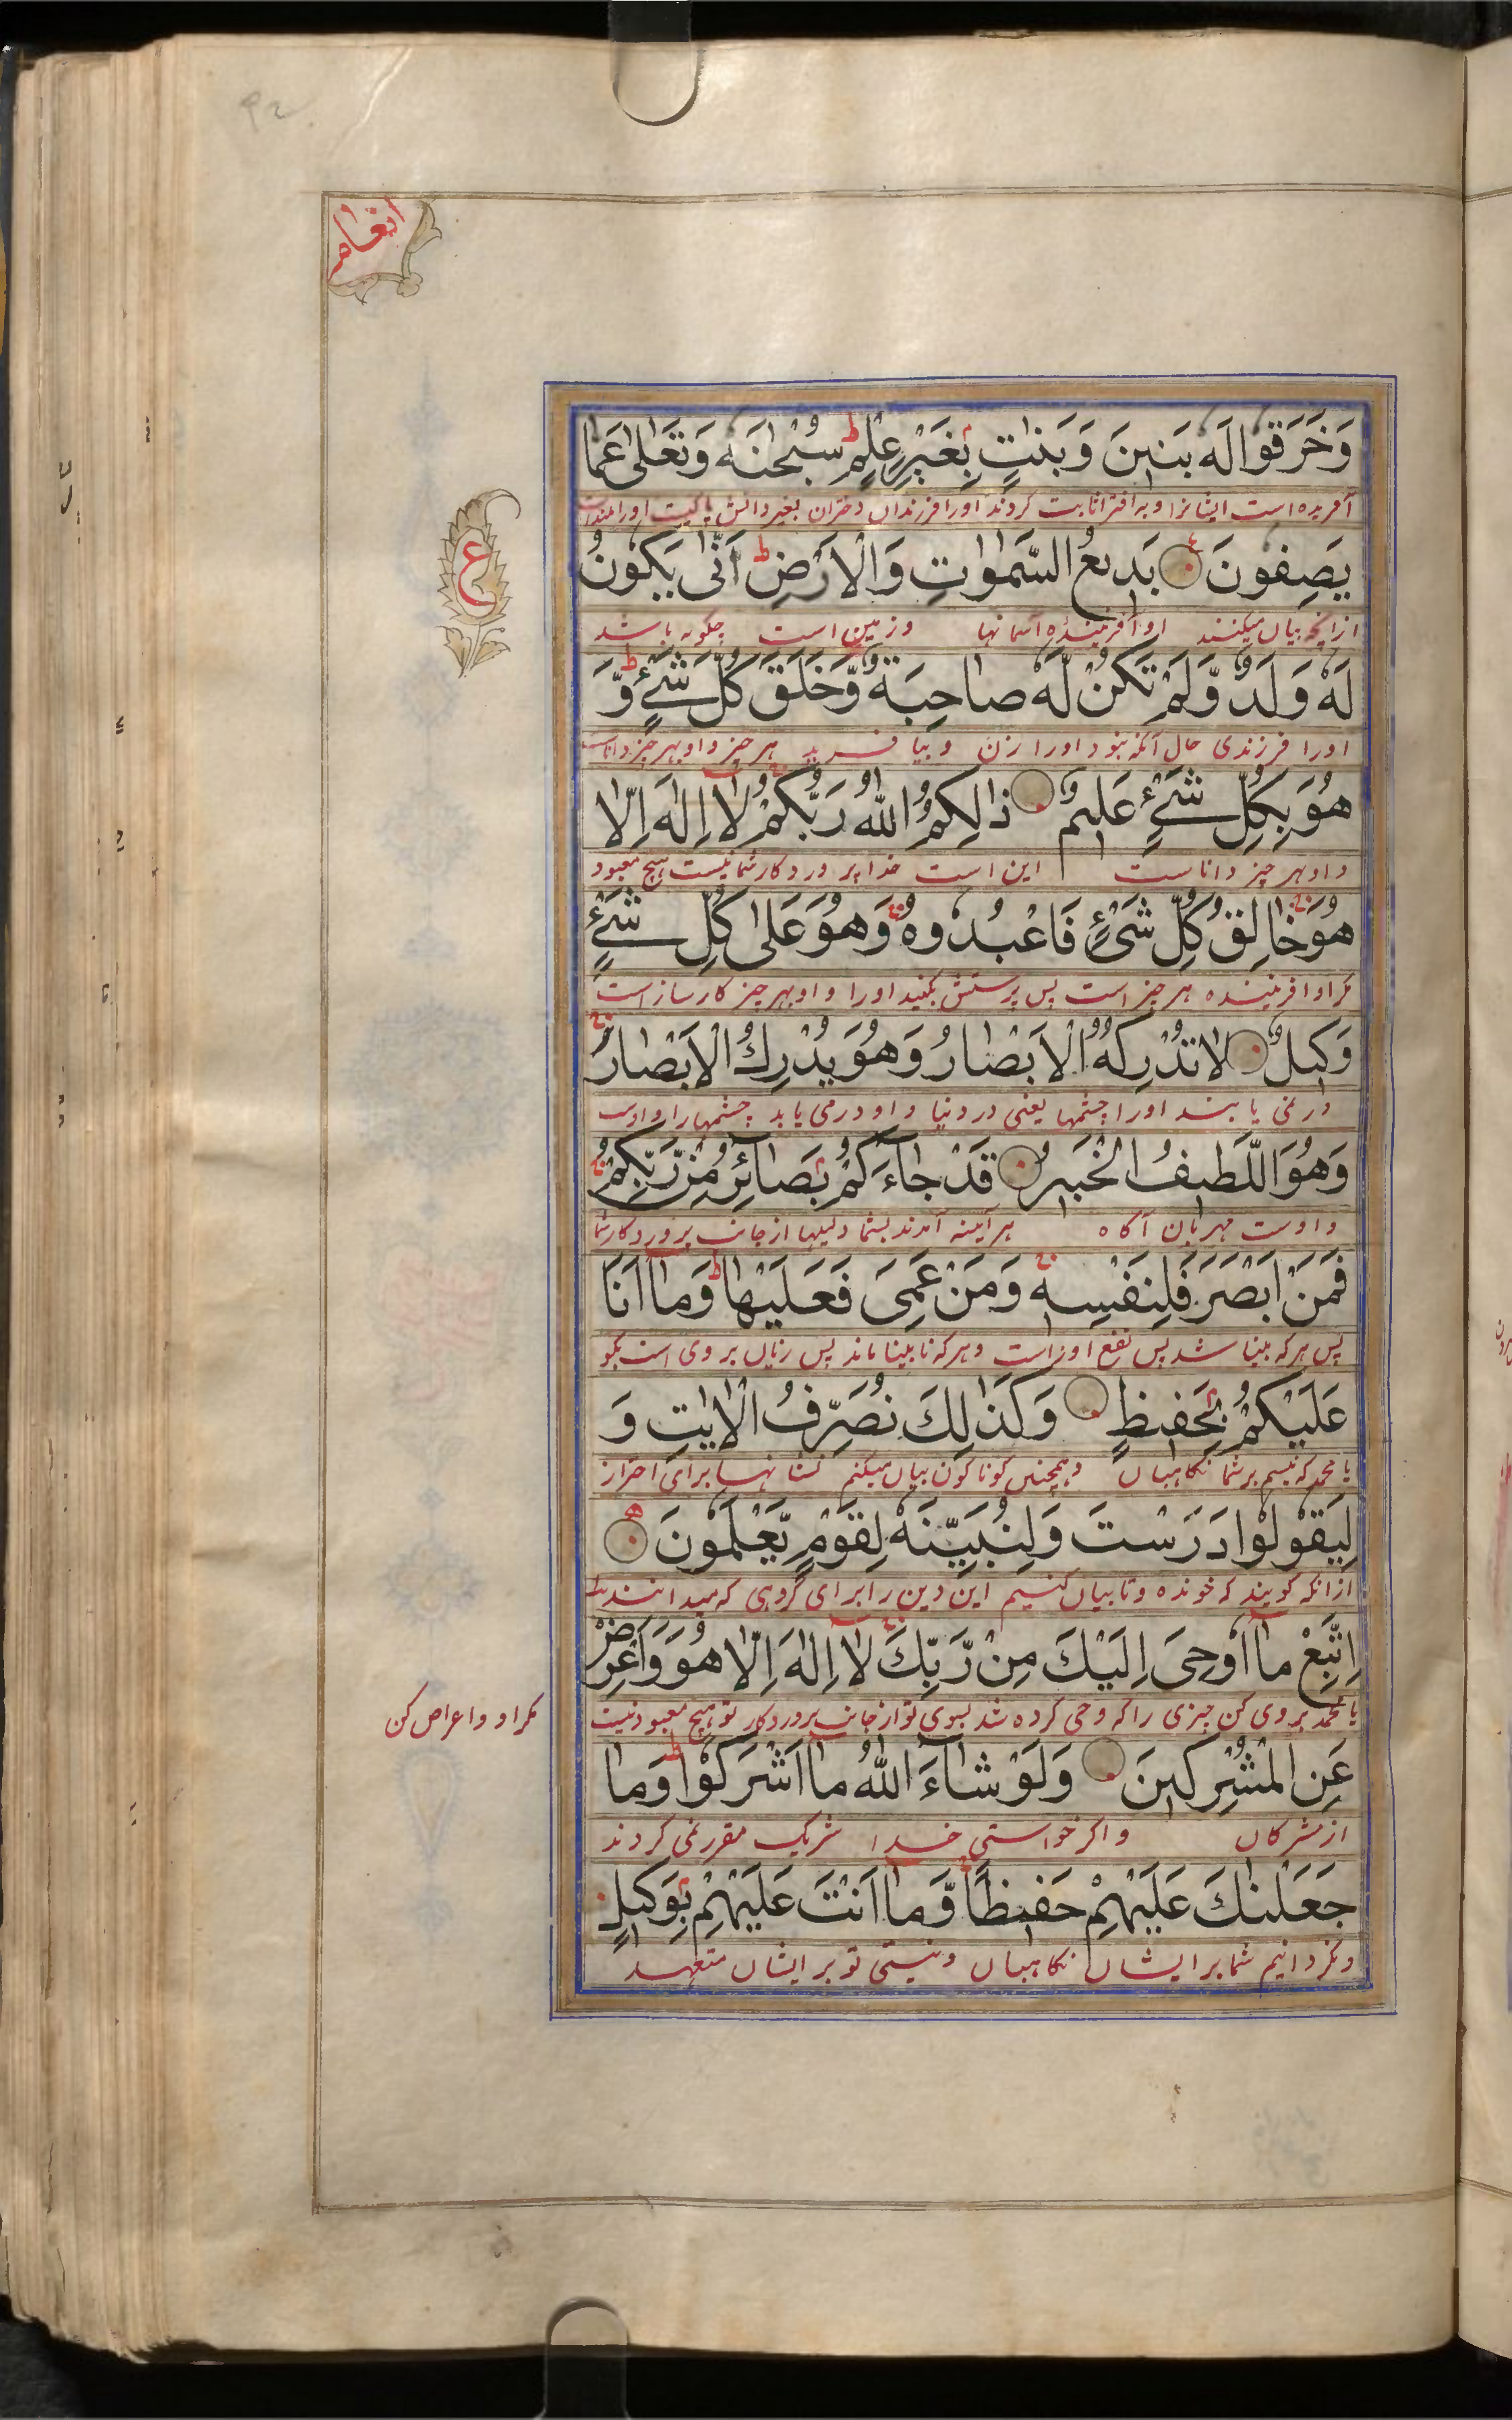 انعام
وَخَرَقُوا لَه بَنِينَ وَبَنٰتٍ بِغَيْرِ عِلْمٍ ط سُبْحٰنَه وَتَعٰلٰى عَمَّا
آفریده است ایشانرا و به افترا ثابت کردند اورا فرزندان و دختران بغیر دانش پاکیست اورا
ع
يَصِفُونَ بَدِيعُ السَّمٰوٰتِ وَالْاَرْضِ ط اَنّٰى يَكُونُ
ازانچه بیان میکنند او آفریننده آسمانها و زمین است چگونه باشد
لَهٗ وَلَدٌ وَّلَمْ تَكُنْ لَّهٗ صَاحِبَةٌ وَّخَلَقَ كُلَّ شَیْءٍ ط وَّ
اورا فرزندی حال آنکه نبود اورا زن و بیافرید هر چیز و او بهر چیز داناست
هُوَ بِكُلِّ شَیْءٍ عَلِيمٌ ذٰلِكُمُ اللّٰهُ رَبُّكُمْ لَا اِلٰهَ اِلَّا
و او بهر چیز داناست این است خدا پروردگار شما نیست هیچ معبود
هُوَ خَالِقُ كُلِّ شَیْءٍ فَاعْبُدُوهُ وَهُوَ عَلٰى كُلِّ شَیْءٍ
مگر او آفریننده هر چیز است پس پرستش بکنید اورا و او بهر چیز کارساز است
وَكِيلٌ لَا تُدْرِكُهُ الْاَبْصَارُ وَهُوَ يُدْرِكُ الْاَبْصَارَ
در نمی یابند اورا چشمها یعنی در دنیا و او در می یابد چشمها را و اوست
وَهُوَ اللَّطِيفُ الْخَبِيرُ قَدْ جَآءَكُمْ بَصَآئِرُ مِنْ رَّبِّكُمْ
و اوست مهربان آگاه هر آیینه آمدند بشما دلیلها از جانب پروردگار شما
فَمَنْ اَبْصَرَ فَلِنَفْسِهٖ وَمَنْ عَمِیَ فَعَلَيْهَا ط وَمَا اَنَا
پس هر که بینا شد پس نفع اوراست و هر که نابینا ماند پس زیان بر وی است بگو
عَلَيْكُمْ بِحَفِيظٍ وَكَذٰلِكَ نُصَرِّفُ الْاٰيٰتِ وَ
یا محمد که نیستم بر شما نگاهبان و همچنین گوناگون بیان میکنم نشانها برای احتراز
لِيَقُولُوا دَرَسْتَ وَلِنُبَيِّنَهٗ لِقَوْمٍ يَّعْلَمُونَ
ازانکه گویند که خوانده و تا بیان کنیم این دین را برای گروهی که میدانند
اِتَّبِعْ مَا اُوحِیَ اِلَيْكَ مِنْ رَّبِّكَ لَا اِلٰهَ اِلَّا هُوَ وَاَعْرِضْ
یا محمد پیروی کن چیزی را که وحی کرده شد بسوی تو از جانب پروردگار تو هیچ معبود نیست
مگر او و اعراض کن
عَنِ الْمُشْرِكِينَ وَلَوْ شَآءَ اللّٰهُ مَا اَشْرَكُوا ط وَمَا
از مشرکان و اگر خواستی خدا شریک مقرر نمی کردند
جَعَلْنٰكَ عَلَيْهِمْ حَفِيظًا وَّمَا اَنْتَ عَلَيْهِمْ بِوَكِيلٍ
و نگردانیم شما بر ایشان نگاهبان و نیستی تو بر ایشان متعهد